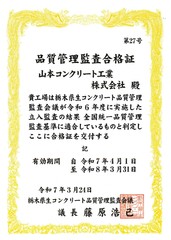 第27号
品質管理監査合格証
山本コンクリート工業
株式会社 殿
貴工場は栃木県生コンクリート品質管理
監査会議が令和6年度に実施した
立入監査の結果 全国統一品質管理
監査基準に適合しているものと判定し
ここに合格証を交付する
記
有効期間 自 令和7年4月1日
至 令和8年3月31日
令和7年3月24日
栃木県生コンクリート品質管理監査会議
議長 藤原浩己